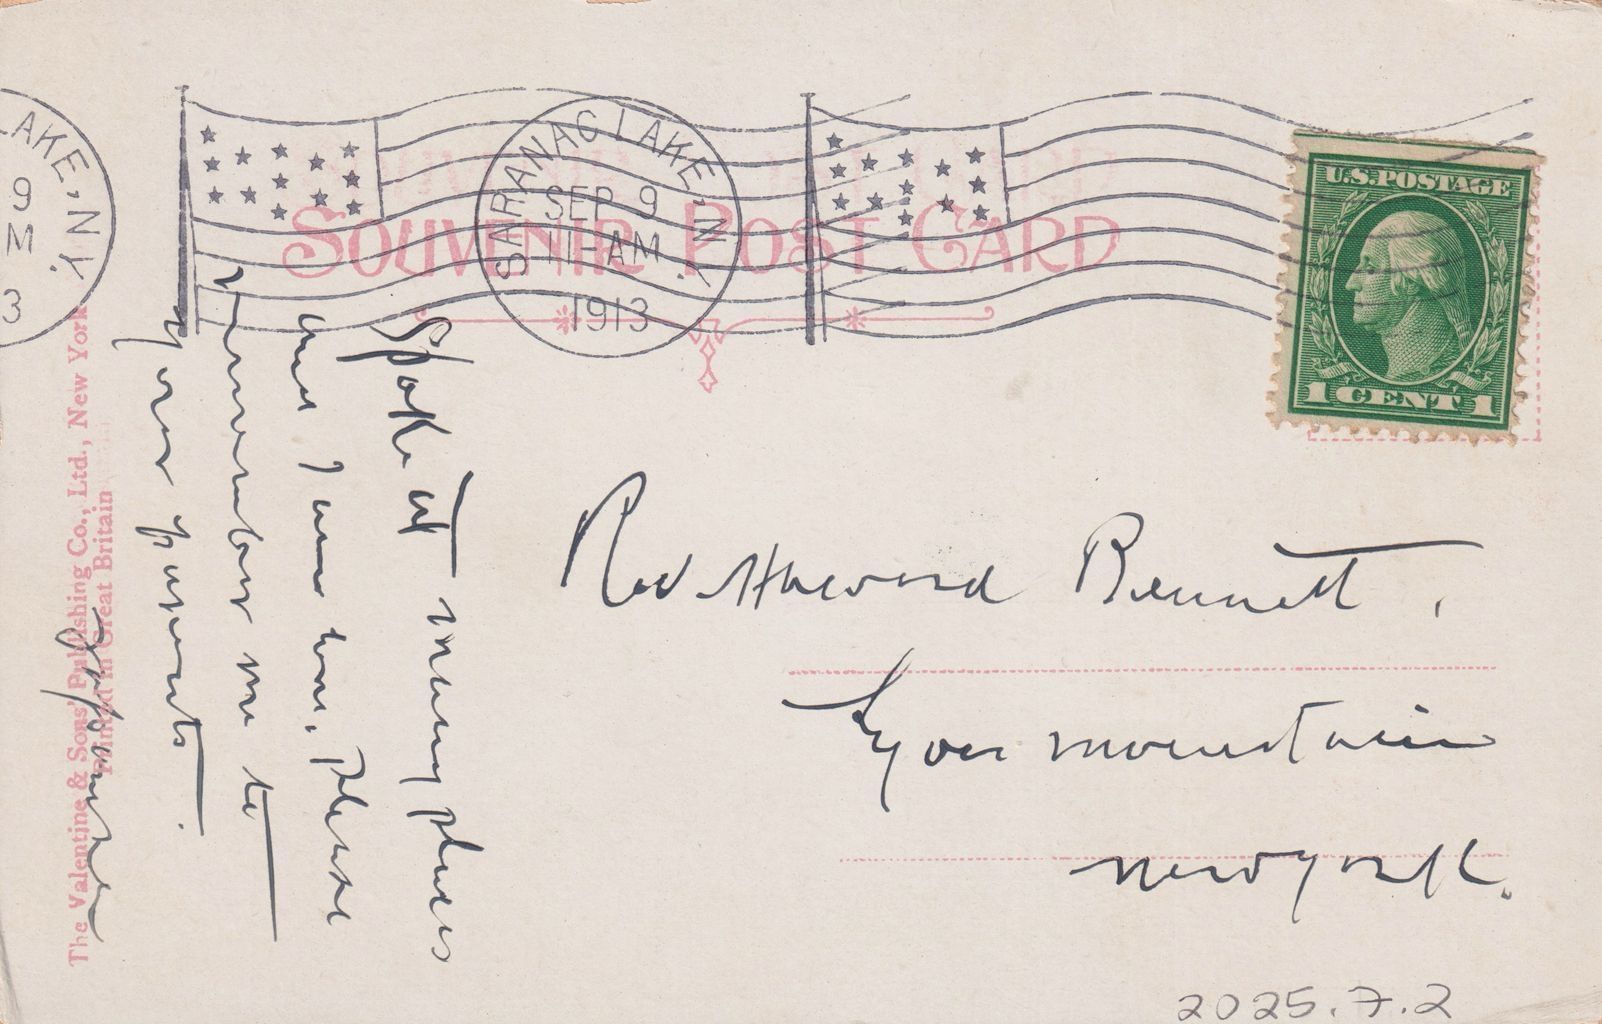 LAKE, N.Y.
9
M
3
SARANAC LAKE, N.Y.
SEP 9
11 AM
1913
SOUVENIR POST CARD
U.S. POSTAGE
1 CENT 1
Spoke at many places
and I am
Please
remember me to
your parents.
Rev Howard Bennett,
Lyon mountain
new york.
The Valentine & Sons' Publishing Co., Ltd., New York
Printed in Great Britain
2025.7.2